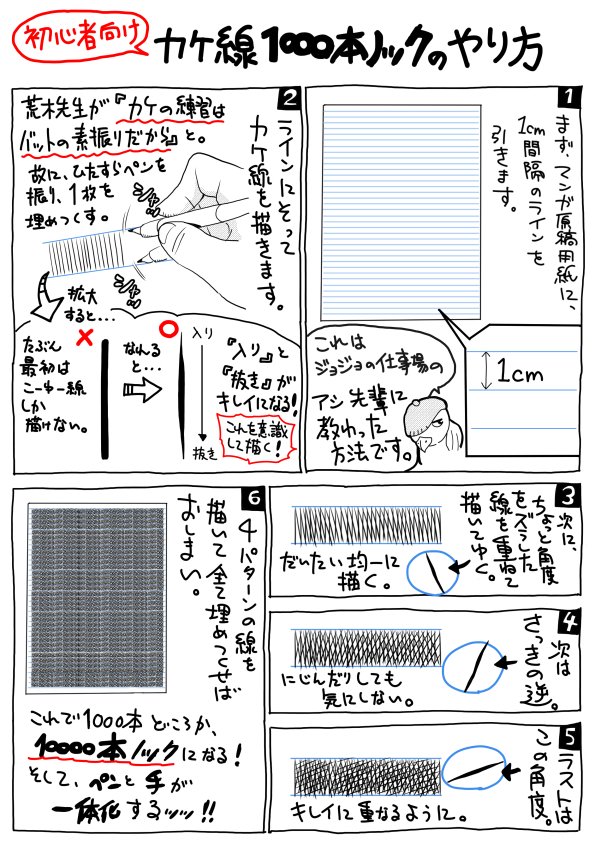 初心者向け
カケ線1000本ノックのやり方
1
まず、マンガ原稿用紙に、
1cm間隔のラインを
引きます。
1cm
これは
ジョジョの仕事場の
アシ先輩に
教わった
方法です。
2
ラインにそって
カケ線を描きます。
荒木先生が『カケの練習は
バットの素振りだから』と。
故に、ひたすらペンを
振り、1枚を
埋めつくす。
シャッ
シャッ
拡大
すると…
×
たぶん
最初は
こーゆー線
しか
描けない。
なれる
と…
○
入り
抜き
『入り』と
『抜き』が
キレイになる!
これを意識
して描く!
3
次に、
ちょっと角度
をズラした
線を重ねて
描いてゆく。
だいたい均一に
描く。
4
次は
さっきの逆。
にじんだりしても
気にしない。
5
ラストは
この角度。
キレイに重なるように。
6
4パターンの線を
描いて全て埋めつくせば
おしまい。
これで1000本どころか、
10000本ノックになる!
そして、ペンと手が
一体化するッッ!!